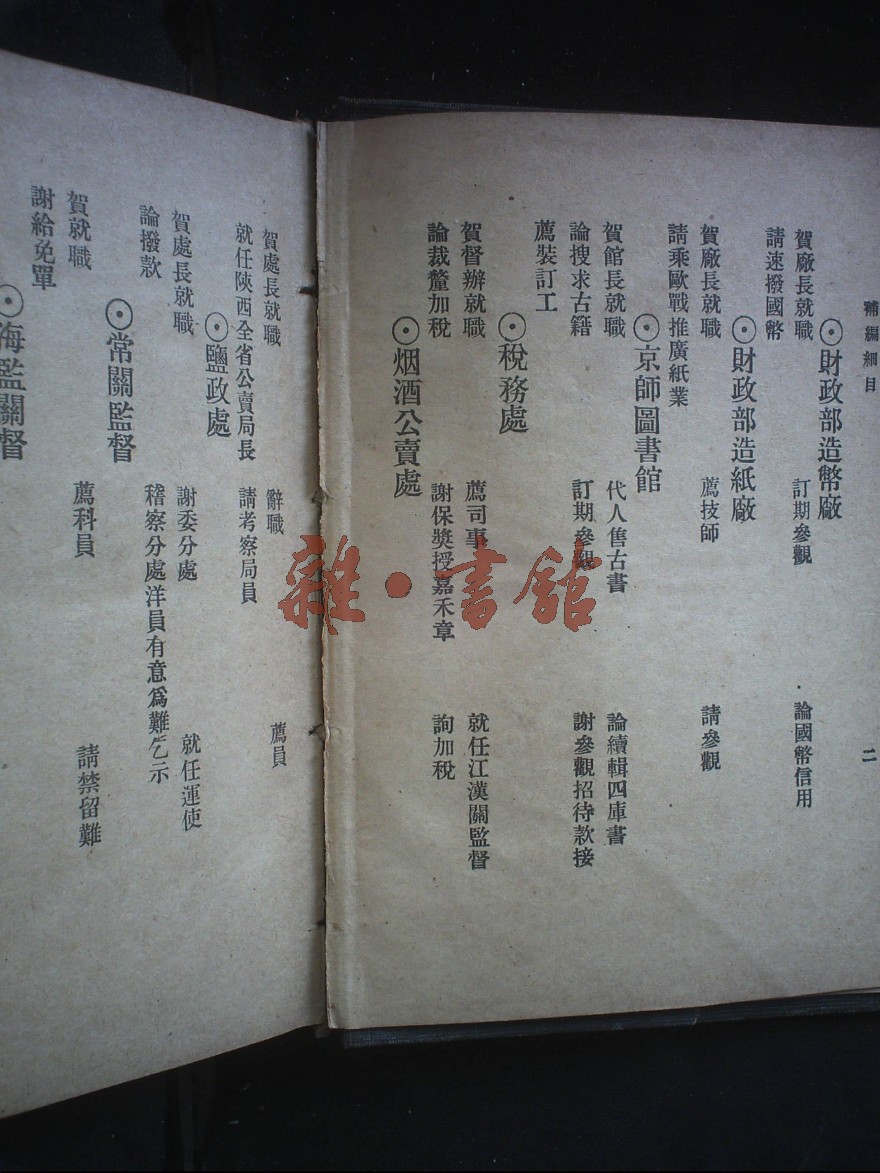 補編細目
二
⊙財政部造幣廠
賀廠長就職 訂期參觀 論國幣信用
請速撥國幣
⊙財政部造紙廠
賀廠長就職 薦技師 請參觀
請乘歐戰推廣紙業
⊙京師圖書館
賀館長就職 代人售古書 論續輯四庫書
論搜求古籍 訂期參觀 謝參觀招待款接
薦裝訂工
⊙稅務處
賀督辦就職 薦司事 就任江漢關監督
論裁釐加稅 謝保獎授嘉禾章 詢加稅
⊙烟酒公賣處
賀處長就職 辭職 薦員
就任陝西全省公賣局長 請考察局員
⊙鹽政處
賀處長就職 謝委分處 就任運使
論撥款 稽察分處洋員有意爲難乞示
⊙常關監督
賀就職 薦科員 請禁留難
謝給免單
⊙海監關督
雜·書館